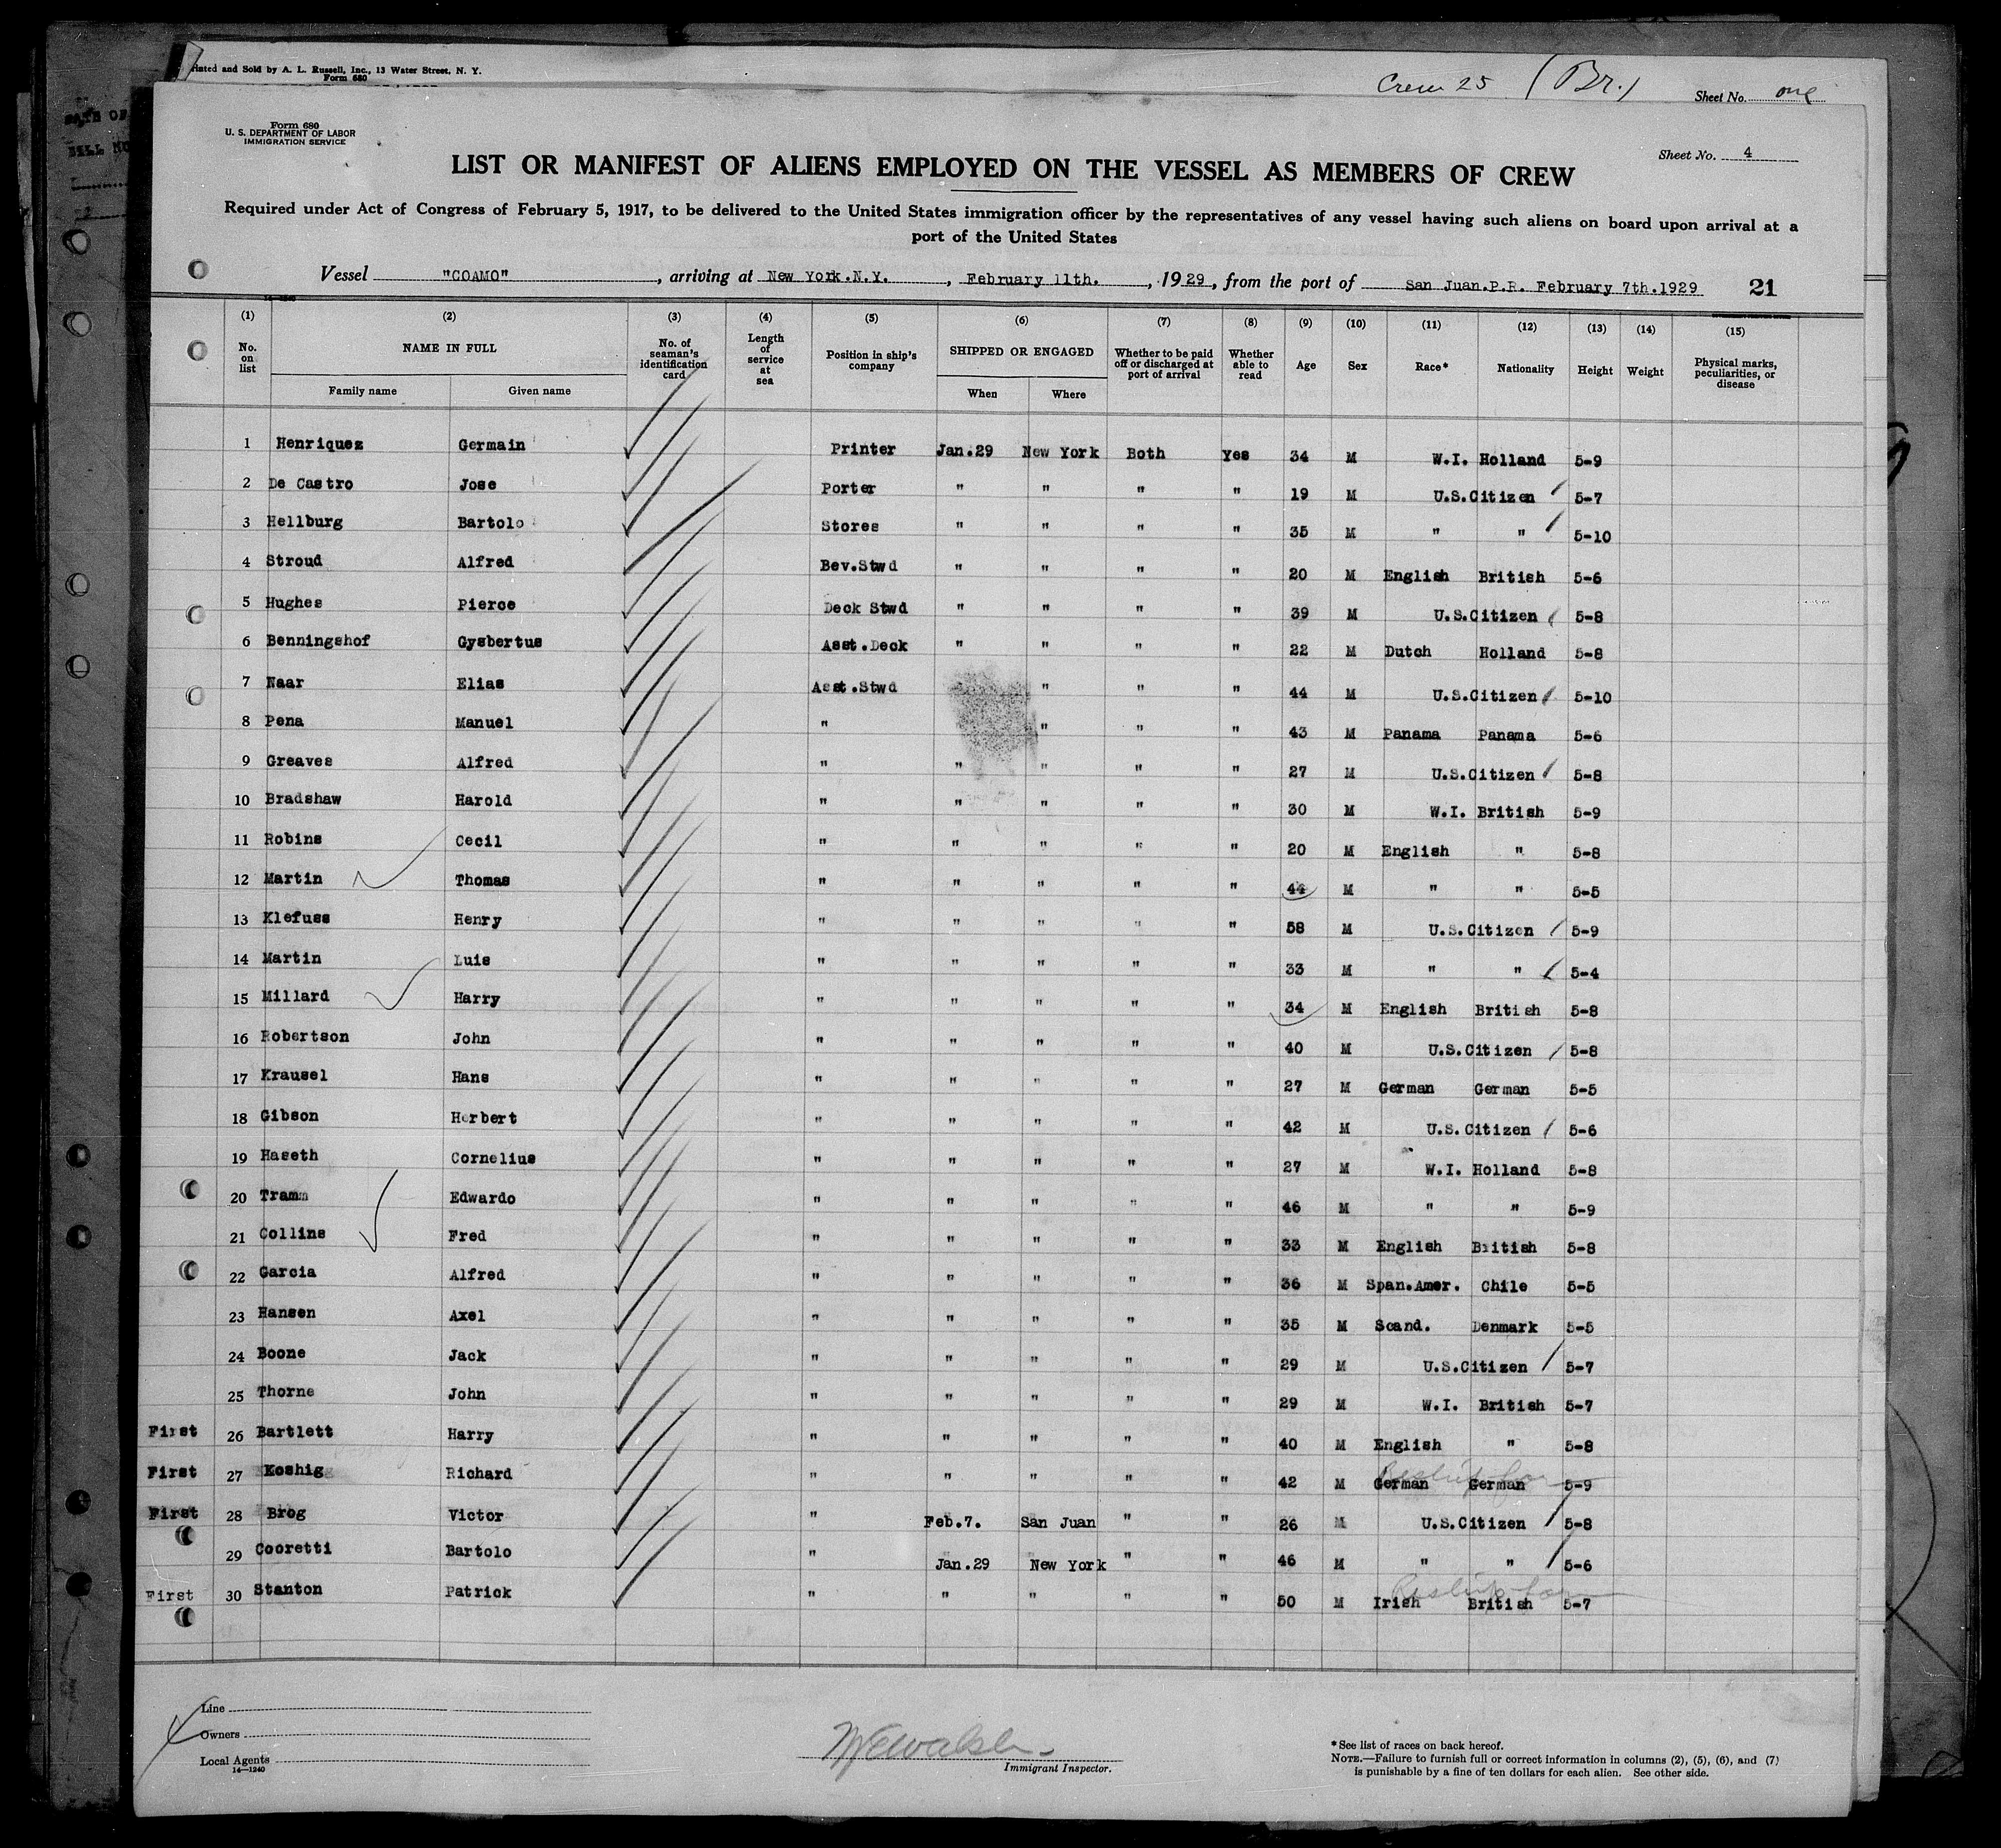 Printed and Sold by A. L. Russell, Inc., 13 Water Street, N. Y.
Form 680
Crew 25 (Br.)
Sheet No. one
Form 680
U. S. DEPARTMENT OF LABOR
IMMIGRATION SERVICE
Sheet No. 4
LIST OR MANIFEST OF ALIENS EMPLOYED ON THE VESSEL AS MEMBERS OF CREW
Required under Act of Congress of February 5, 1917, to be delivered to the United States immigration officer by the representatives of any vessel having such aliens on board upon arrival at a
port of the United States
Vessel "COAMO", arriving at New York.N.Y., February 11th., 1929, from the port of San Juan.P.R. February 7th.1929 21
14-1240
(1) (2) (3) (4) (5) (6) (7) (8) (9) (10) (11) (12) (13) (14) (15)
No. on list NAME IN FULL No. of seaman's identification card Length of service at sea Position in ship's company SHIPPED OR ENGAGED Whether to be paid off or discharged at port of arrival Whether able to read Age Sex Race* Nationality Height Weight Physical marks, peculiarities, or disease
Family name Given name When Where
1 Henriquez Germain Printer Jan.29 New York Both Yes 34 M W.I. Holland 5-9
2 De Castro Jose Porter " " " " 19 M U.S.Citizen 5-7
3 Hellburg Bartolo Stores " " " " 35 M " " 5-10
4 Stroud Alfred Bev.Stwd " " " " 20 M English British 5-6
5 Hughes Pierce Deck Stwd " " " " 39 M U.S.Citizen 5-8
6 Benningshof Gysbertus Asst.Deck " " " " 22 M Dutch Holland 5-8
7 Naar Elias Asst.Stwd " " " 44 M U.S.Citizen 5-10
8 Pena Manuel " " " " 43 M Panama Panama 5-6
9 Greaves Alfred " " " " " 27 M U.S.Citizen 5-8
10 Bradshaw Harold " " " " " 30 M W.I. British 5-9
11 Robins Cecil " " " " " 20 M English " 5-8
12 Martin Thomas " " " " " 44 M " " 5-5
13 Klefuss Henry " " " " " 58 M U.S.Citizen 5-9
14 Martin Luis " " " " " 33 M " " 5-4
15 Millard Harry " " " " " 34 M English British 5-8
16 Robertson John " " " " " 40 M U.S.Citizen 5-8
17 Krausel Hans " " " " " 27 M German German 5-5
18 Gibson Herbert " " " " " 42 M U.S.Citizen 5-6
19 Haseth Cornelius " " " " " 27 M W.I. Holland 5-8
20 Tramm Edwardo " " " " " 46 M " " 5-9
21 Collins Fred " " " " " 33 M English British 5-8
22 Garcia Alfred " " " " " 36 M Span.Amer. Chile 5-5
23 Hansen Axel " " " " " 35 M Scand. Denmark 5-5
24 Boone Jack " " " " " 29 M U.S.Citizen 5-7
25 Thorne John " " " " " 29 M W.I. British 5-7
First 26 Bartlett Harry " " " " " 40 M English " 5-8
First 27 Koshig Richard " " " " " 42 M German German 5-9
First 28 Brog Victor " Feb.7. San Juan " " 26 M U.S.Citizen 5-8
29 Cooretti Bartolo " Jan.29 New York " " 46 M " " 5-6
First 30 Stanton Patrick " " " " " 50 M Irish British 5-7
Line
Owners
Local Agents
14—1240
Immigrant Inspector.
*See list of races on back hereof.
NOTE.—Failure to furnish full or correct information in columns (2), (5), (6), and (7)
is punishable by a fine of ten dollars for each alien. See other side.